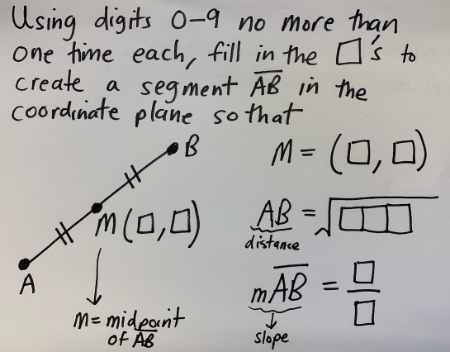 Using digits 0-9 no more than
one time each, fill in the □'s to
create a segment AB in the
coordinate plane so that
B
M = (□, □)
M(□, □)
AB = √□□□
distance
A
mAB = □/□
slope
M = midpoint
of AB